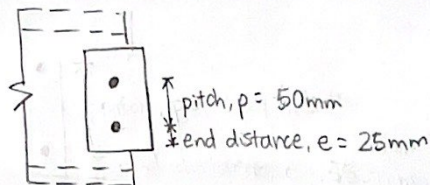 pitch, p = 50mm
end distance, e = 25mm